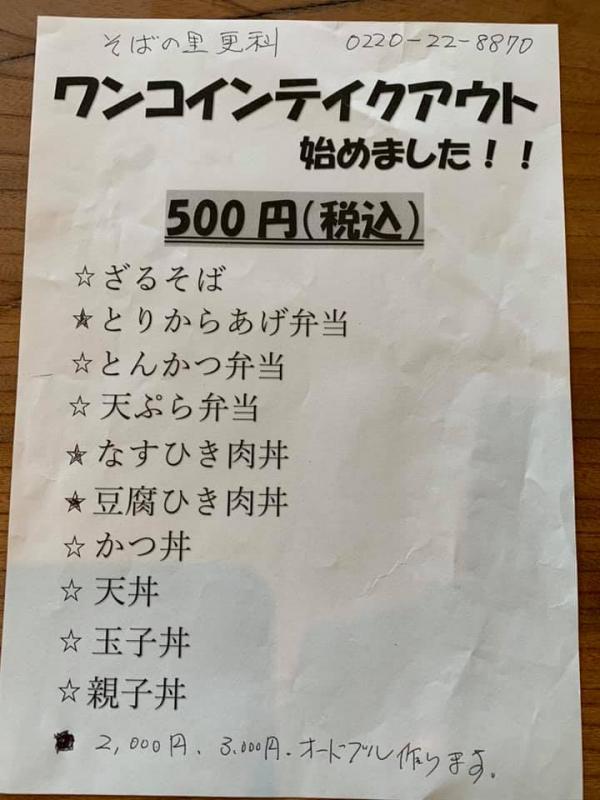 そばの里更科 0220-22-8870
ワンコインテイクアウト
始めました！！
500円(税込)
☆ざるそば
★とりからあげ弁当
☆とんかつ弁当
☆天ぷら弁当
★なすひき肉丼
★豆腐ひき肉丼
☆かつ丼
☆天丼
☆玉子丼
☆親子丼
● 2,000円、3,000円、オードブル作ります。